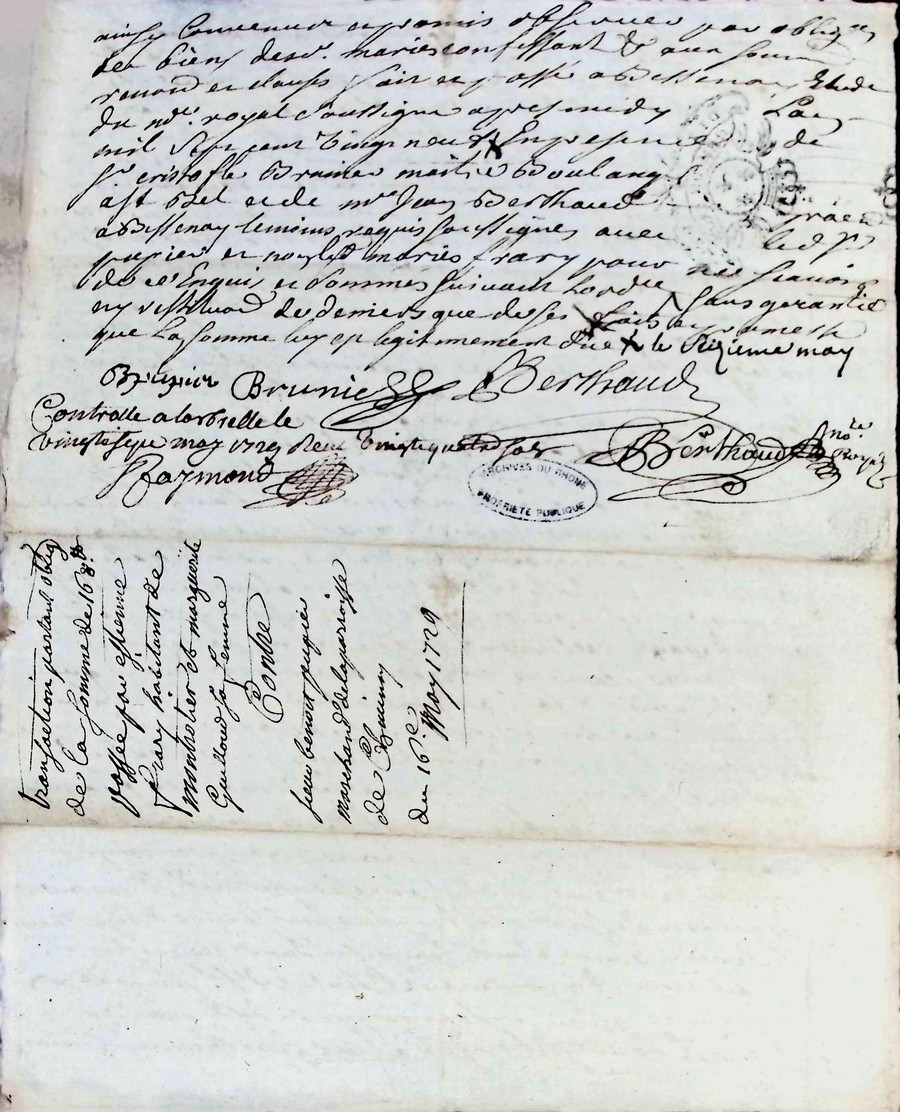 ainsy convenu et promis observer par oblig[on]
des biens desd. mariés confessant & aux
renond et clauses fait et passé a Bessenay Etude
du no.re royal soussigné apres midy L'an
mil sept cent vingt neuf X En presence de
Sr. cristofle Brunier maitre Boulanger
et de Mre Jean Berthaud
a Bessenay temoins requis soussignés avec led. Sr
pugier et non led. mariés frary pour ne scavoir
de ce Enquis et sommés suivant Lordce sans garantie
ny restitu[on] de deniers que de ses faits et promesse
que La somme luy est legitimement due X le seizieme may
Brunier Berthaud
Controlle a larbrelle le
vingt sept may 1729 Receu vingt quatre sols
Berthaud no.re Royal
Raymond
ARCHIVES DU RHÔNE
PROPRIÉTÉ PUBLIQUE
transaction portant oblig
de la somme de 168
passée par estienne
frary habitant de
montrotier et marguerite
sa femme
Contre
sieur benoit pugier
marchand de la parroisse
de
du 16e. May 1729